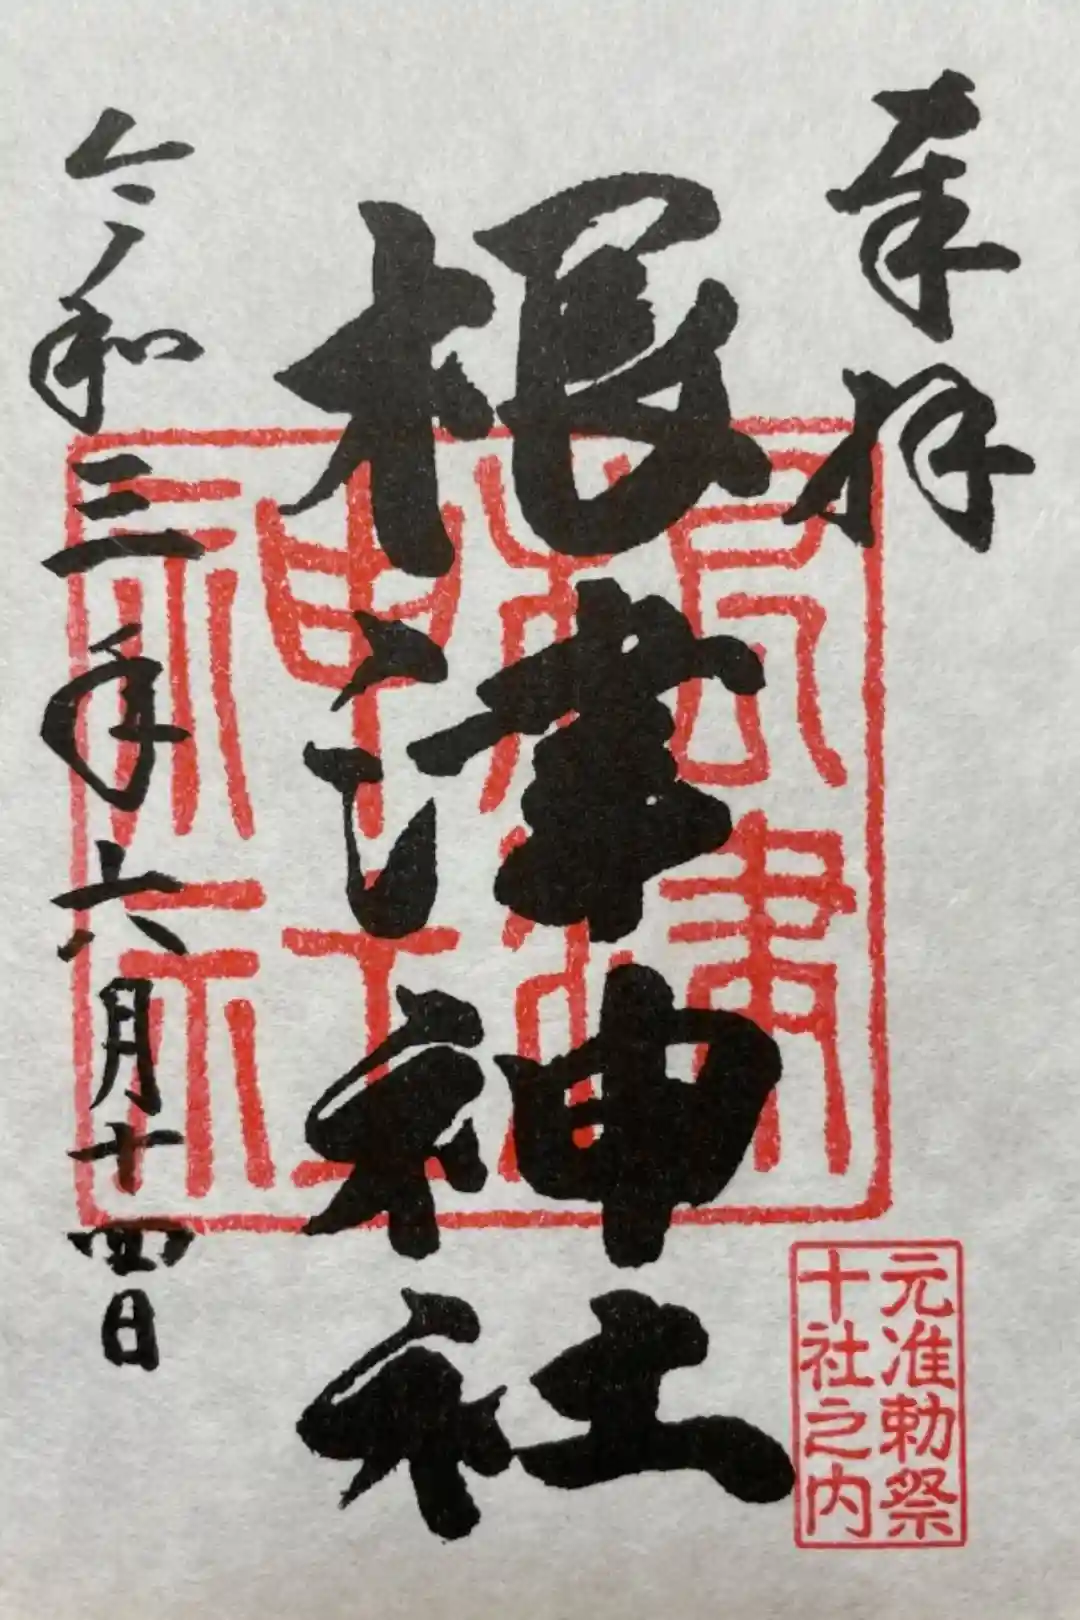 奉拝
根津神社
令和三年六月十四日
根津
神社
元准勅祭
十社之内